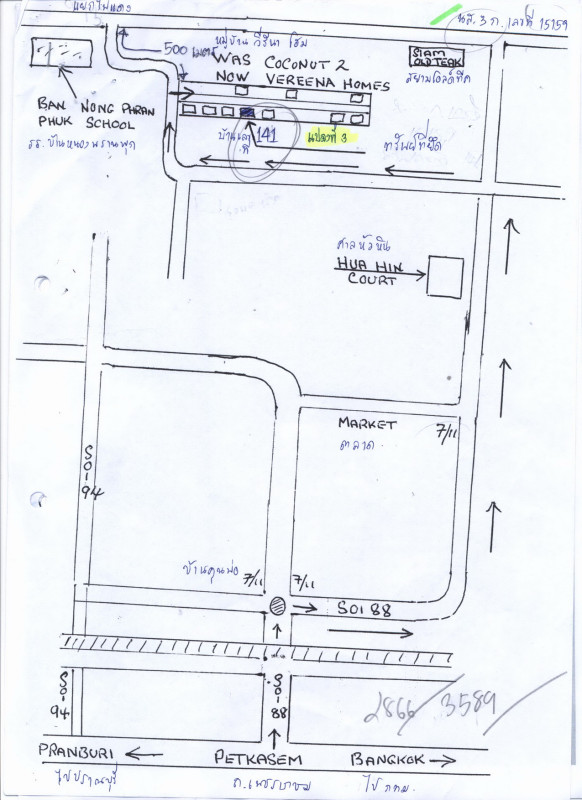 แยกไฟแดง
น.ส. 3 ก. เลขที่ 15159
หมู่บ้าน วีรีนา โฮม
500 เมตร
WAS COCONUT 2
NOW VEREENA HOMES
SIAM
OLD TEAK
สยามโอลด์ทีค
BAN NONG PHRAN
PHUK SCHOOL
รร. บ้านหนองพรานพุก
บ้านเลข
ที่
141
แปลงที่ 3
ศาลหัวหิน
HUA HIN
COURT
MARKET
ตลาด
7/11
SOI 94
7/11
7/11
SOI 88
SOI 94
SOI 88
2866
3589
PRANBURI
PETKASEM
BANGKOK
ไปปราณบุรี
ถ.เพชรเกษม
ไป กทม.